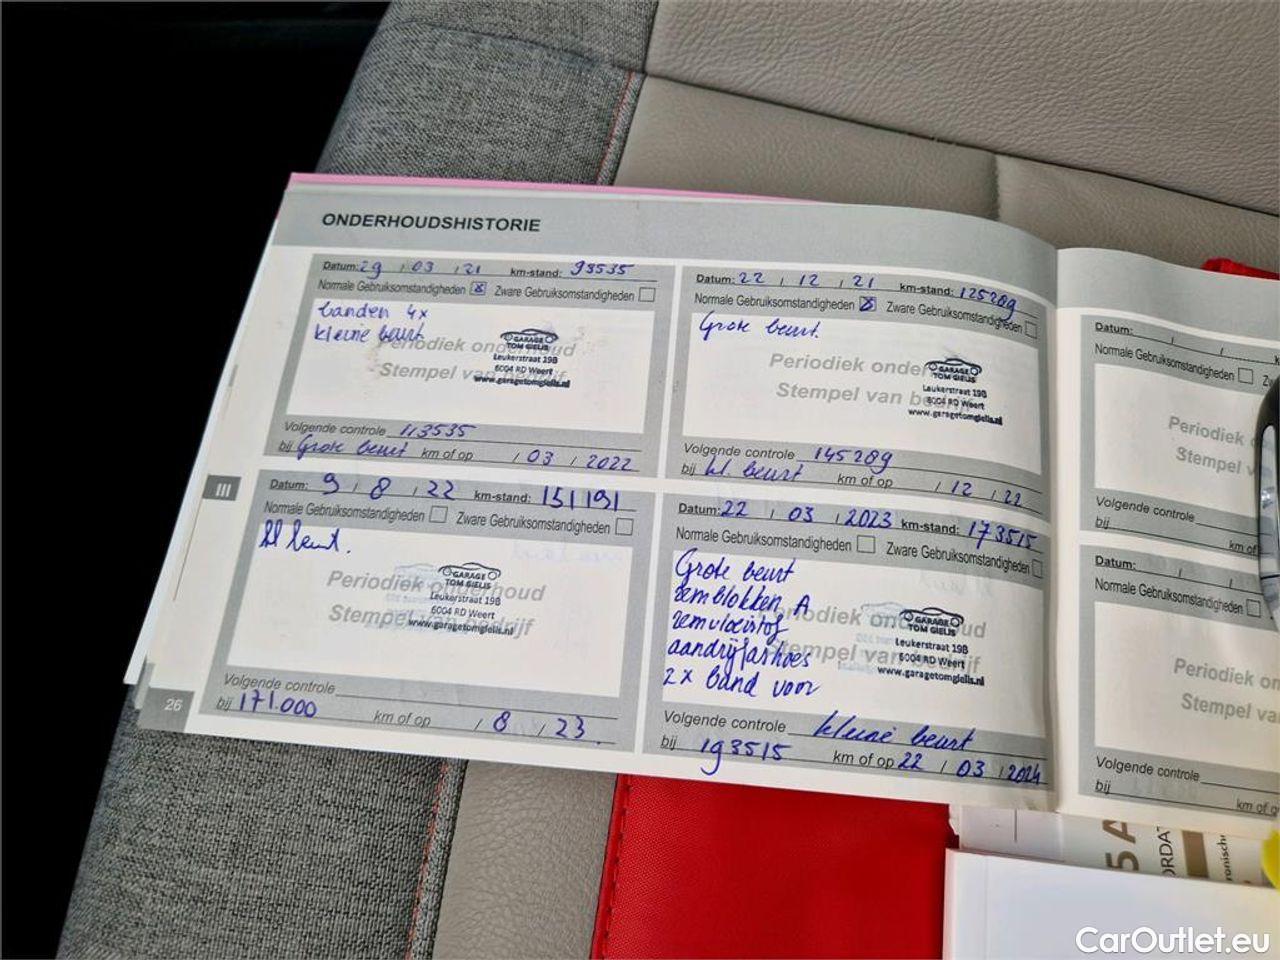 ONDERHOUDSHISTORIE
Datum: 29 / 03 / 21 km-stand: 93535
Normale Gebruiksomstandigheden Zware Gebruiksomstandigheden
banden 4x
kleine beurt
Periodiek onderhoud
Stempel van bedrijf
GARAGE
TOM GIELIS
Leukerstraat 19B
6004 RD Weert
www.garagetomgielis.nl
Volgende controle 113535
bij Grote beurt km of op / 03 / 2022
Datum: 22 / 12 / 21 km-stand: 125289
Normale Gebruiksomstandigheden Zware Gebruiksomstandigheden
Grote beurt.
Periodiek onderhoud
Stempel van bedrijf
GARAGE
TOM GIELIS
Leukerstraat 19B
6004 RD Weert
www.garagetomgielis.nl
Volgende controle 145289
bij kl. beurt km of op / 12 / 22
III
Datum: 9 / 8 / 22 km-stand: 151191
Normale Gebruiksomstandigheden Zware Gebruiksomstandigheden
kl beurt.
Periodiek onderhoud
Stempel van bedrijf
GARAGE
TOM GIELIS
Leukerstraat 19B
6004 RD Weert
www.garagetomgielis.nl
Volgende controle
bij 171.000 km of op / 8 / 23.
26
Datum: 22 / 03 / 2023 km-stand: 173515
Normale Gebruiksomstandigheden Zware Gebruiksomstandigheden
Grote beurt
remblokken A
remvloeistof
aandrijfashoes
2x band voor
Periodiek onderhoud
Stempel van bedrijf
GARAGE
TOM GIELIS
Leukerstraat 19B
6004 RD Weert
www.garagetomgielis.nl
Volgende controle kleine beurt
bij 193515 km of op 22 / 03 / 2024
Datum: / /
Normale Gebruiksomstandigheden
Periodiek
Stempel
Volgende controle
bij km of
Datum: / /
Normale Gebruiksomstandigheden
Periodiek
Stempel va
Volgende controle
bij km of o
5 A
ORDAT
CarOutlet.eu